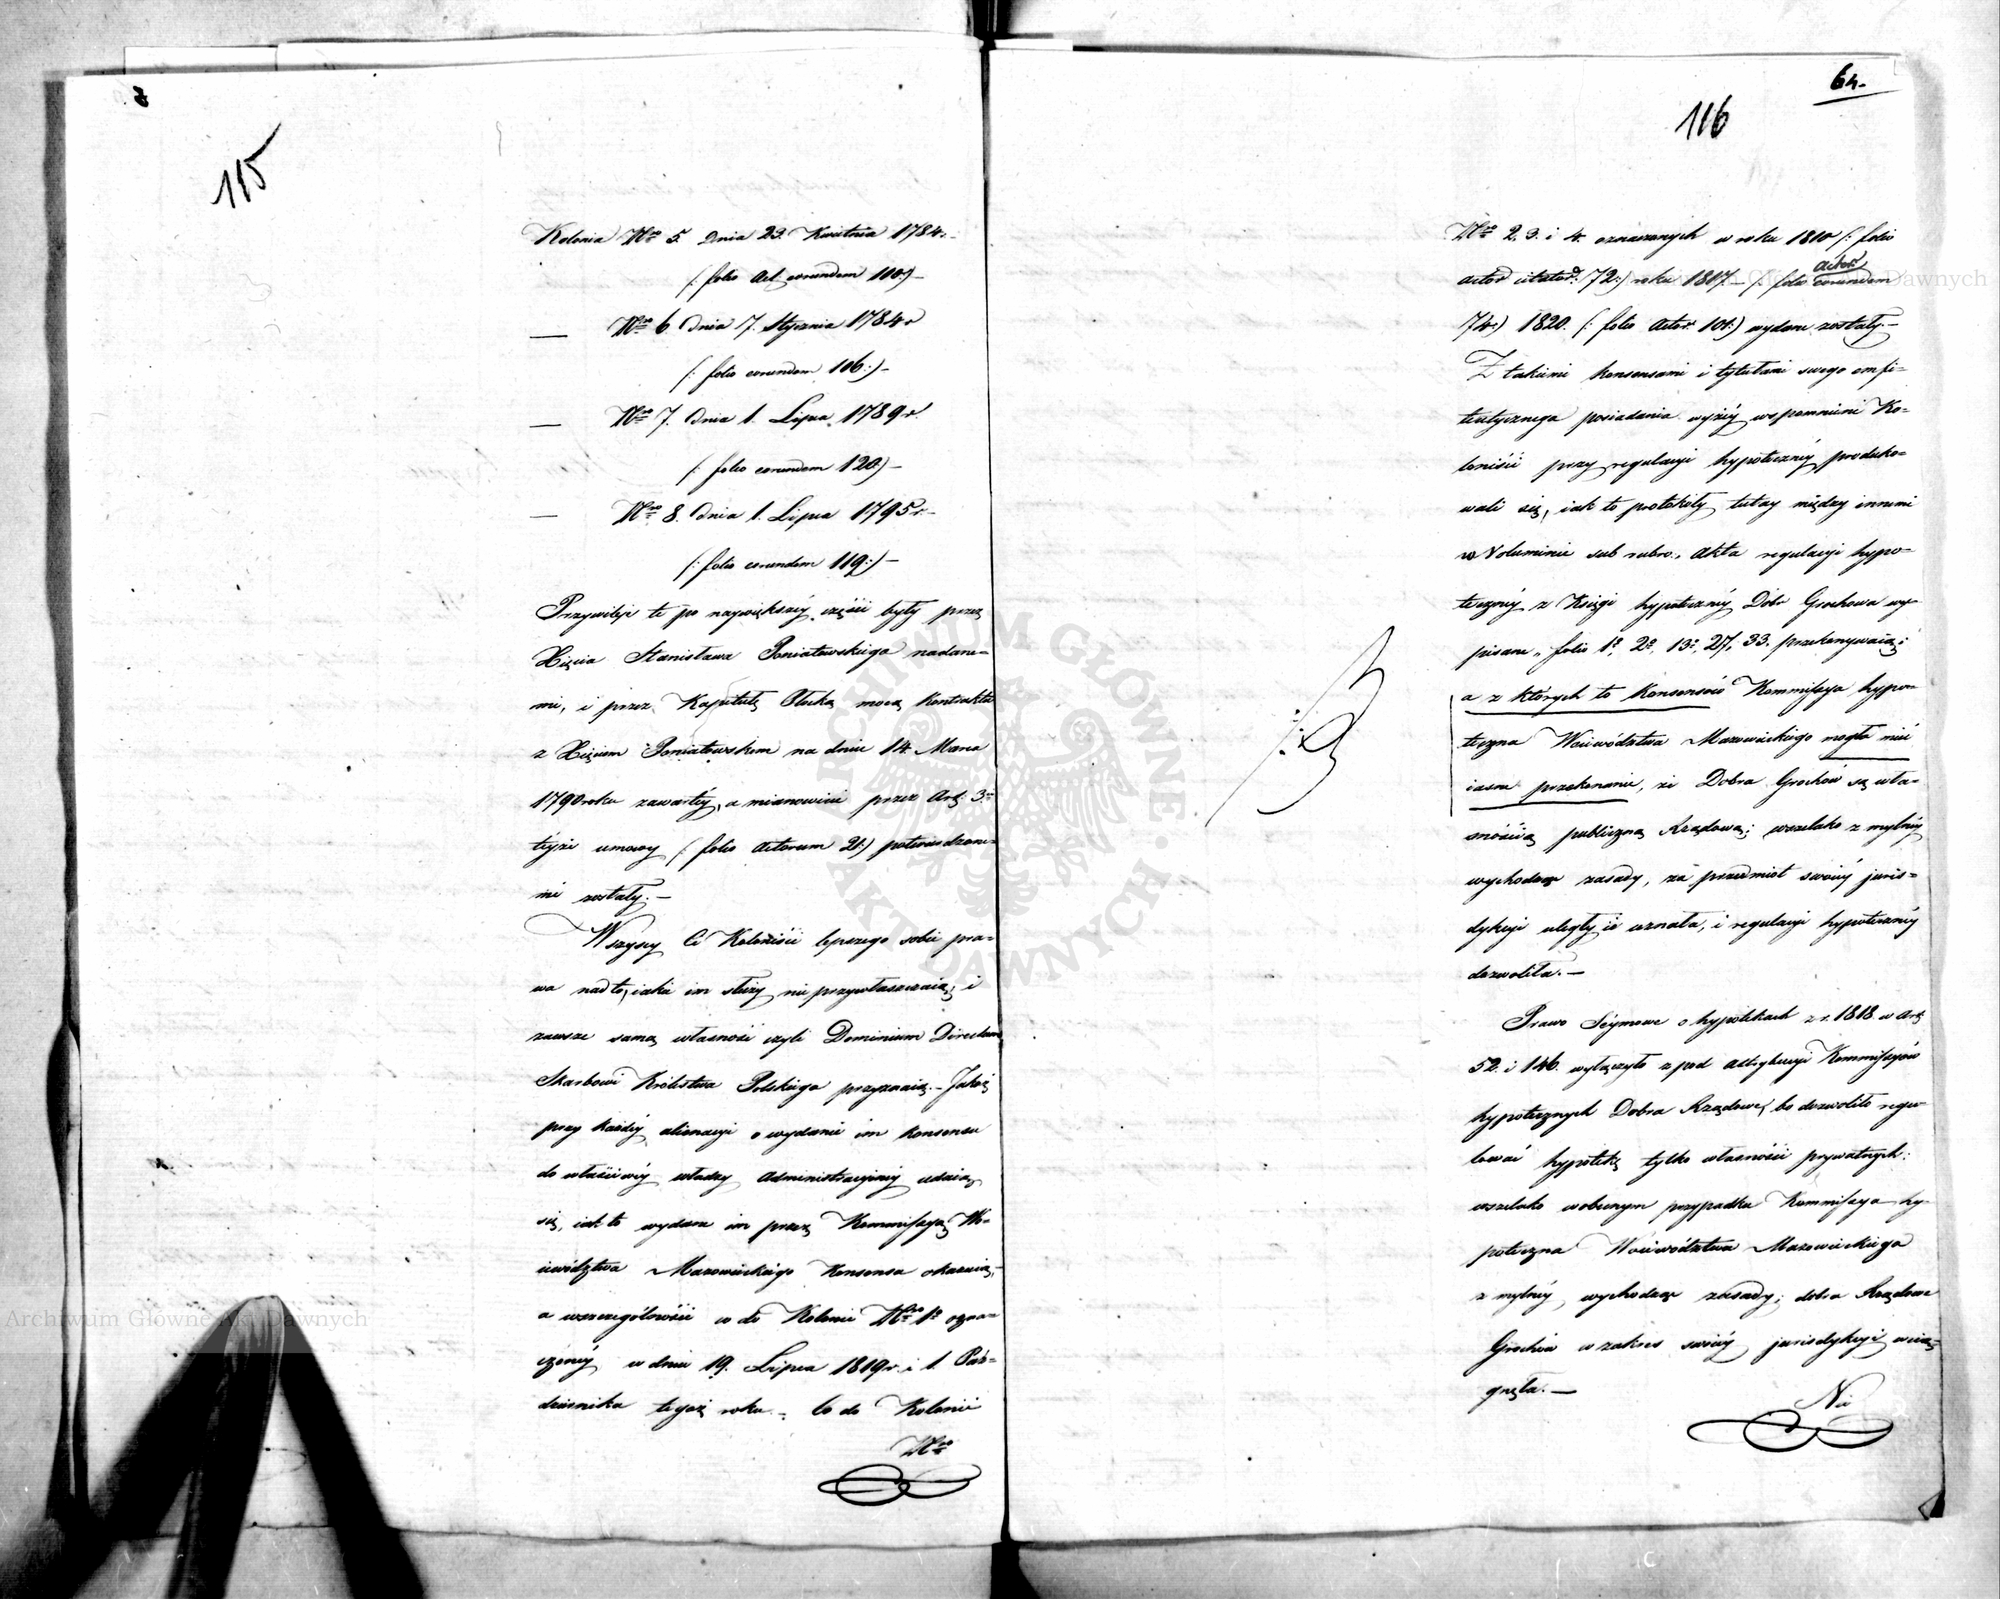 115
Kolonia Nro 5. dnia 23. Kwietnia 1784.
(: folio Act. eorundem 110:)—
— Nro 6 dnia 7. Stycznia 1784 r
(: folio eorundem 106:)—
— Nro 7. dnia 1. Lipca 1789 r.
(: folio eorundem 120:)—
— Nro 8. dnia 1. Lipca 1795 r.—
(: folio eorundem 119:)—
Przywileje te po największey części były przez
Xięcia Stanisława Poniatowskiego nadane-
mi, i przez Kapitułę Płocką mocą Kontraktu
z Xięciem Poniatowskim na dniu 14. Marca
1790 roku zawartey, a mianowicie przez Art. 3ci
teyże umowy (: folio Actorum 21:) potwierdzone-
mi zostały.—
Wszyscy Ci Koloniści lepszego sobie pra-
wa nad to, iakie im służy nie przywłaszczaią, i
zawsze samą własność czyli Dominium Directum
Skarbowi Królestwa Polskiego przyznaią.— Jakoż
przy każdey alienacyi o wydanie im konsensu
do właściwey władzy Administracyiney udaią
się, iak to wydane im przez Kommissyą Wo-
iewództwa Mazowieckiego Konsensa okazuią,—
a w szczególności co do Kolonii Nro 1o ozna-
czoney w dniu 19. Lipca 1819 r. i 1. Paź-
dziernika tegoż roku.— Co do Kolonii
Nro
64.
116
Nro 2. 3. i 4. oznaczonych w roku 1810 (: folio
actor citator: 72:) roku 1817.— (: folio actor eorundem
74:) 1820. (: folio Actor: 101:) wydane zostały.—
Z takiemi konsensami i tytułami swego emfi-
teutycznego posiadania wyżey wspomnieni Ko-
loniści przy regulacyi hypoteczney produko-
wali się, iak to protokóły tutay między innemi
w Voluminie sub rubro, Akta regulacyi hypo-
teczney z Księgi hypoteczney Dobr Grochowa wy-
pisane „ folio 1o, 2o, 13o, 27, 33. przekonywaią;
a z których to Konsensów Kommissya hypo-
teczna Woiewództwa Mazowieckiego mogła mieć
iasne przekonanie, że Dobra Grochów są wła-
snością publiczną Rządową; wszelako z mylney
wychodząc zasady, za przedmiot swoiey juris-
dykcyi uległy ie uznała, i regulacyi hypoteczney
dozwoliła.—
Prawo Seymowe o hypotekach z r. 1818 w Art
52. i 146. wyłączyło z pod Attrybucyi Kommissyów
hypotecznych Dobra Rządowe, bo dozwoliło regu-
lować hypotekę tylko własności prywatnych:
wszelako w obecnym przypadku Kommissya hy-
poteczna Woiewództwa Mazowieckiego
z mylney wychodząc zasady, dobra Rządowe
Grochów w zakres swoiey jurisdykcyi wcią-
gnęła.—
Nie